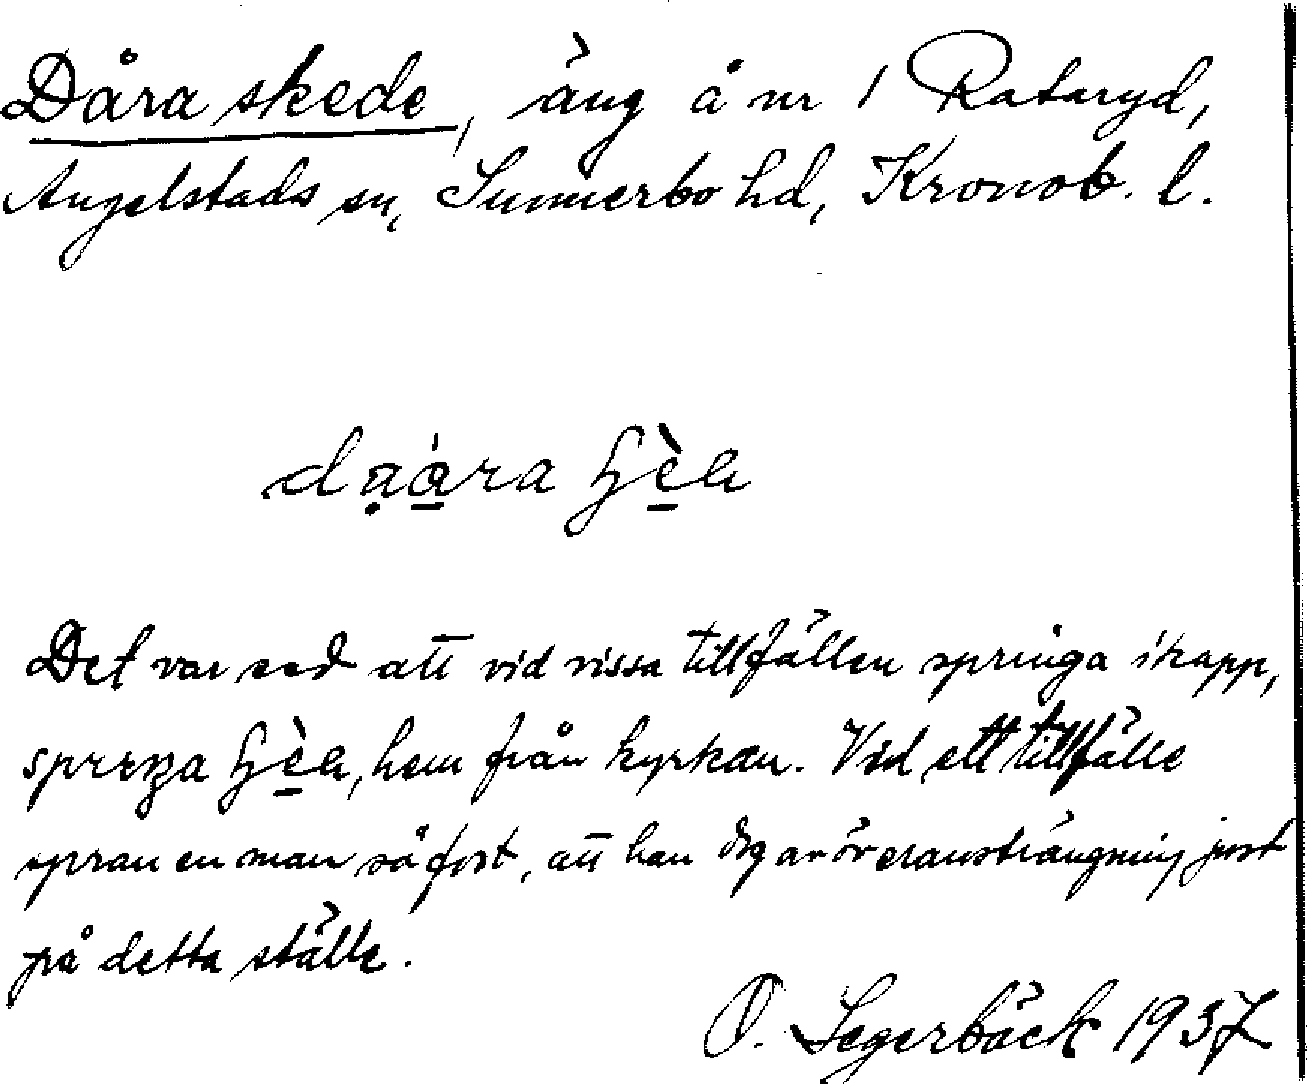 Dåra skede, äng å nr 1 Rataryd,
Angelstads sn, Sunnerbo hd, Kronob. l.
Det var sed att vid vissa tillfällen springa ikapp,
hem från kyrkan. Vid ett tillfälle
spran en man så fort, att han dog av överansträngning just
på detta ställe.
O. Segerbäck 1937